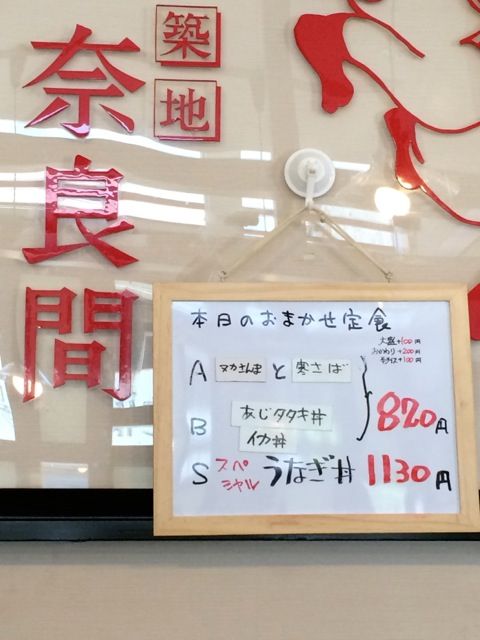 築地
奈良間
本日のおまかせ定食
大盛+100円
おかわり+200円
+100円
A ヌカさんま と 寒さば
B あじタタキ丼
イカ丼
820円
S スペシャル うなぎ丼 1130円